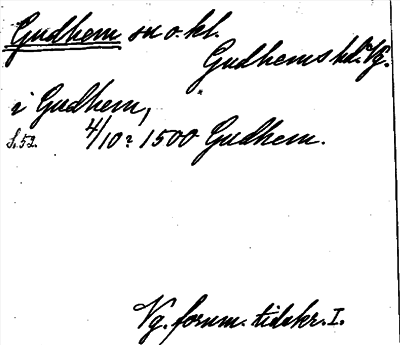 Gudhem sn o. kl.
Gudhems hd. Vg.
i Gudhem,
s. 52. 4/10? 1500 Gudhem.
Vg. fornm. tidskr. I.